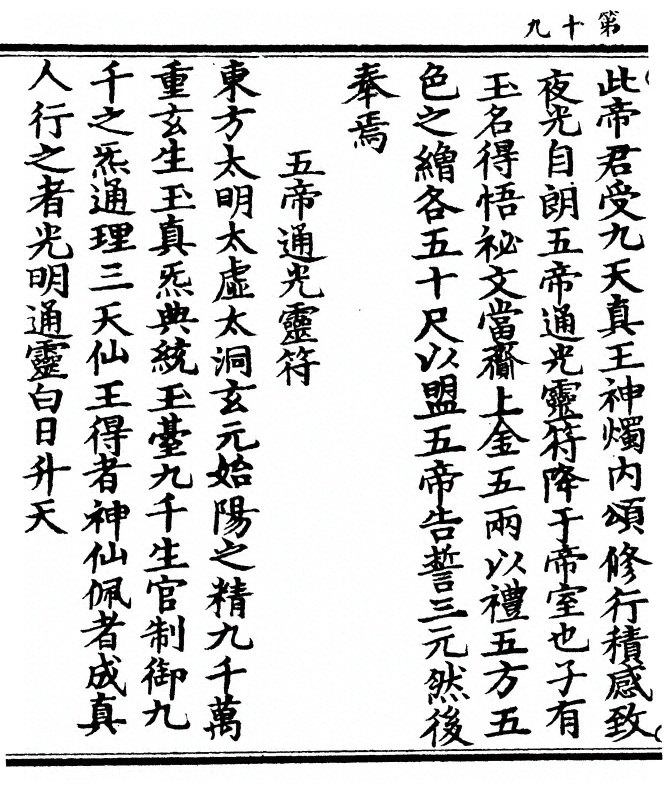 第十九
此帝君受九天真王神燭内頌修行積感致
夜光自朗五帝通光靈符降于帝室也子有
玉名得悟祕文當齎上金五兩以禮五方五
色之繒各五十尺以盟五帝告誓三元然後
奉焉
五帝通光靈符
東方太明太虛太洞玄元始陽之精九千萬
重玄生玉真炁典統玉臺九千生官制御九
千之炁通理三天仙王得者神仙佩者成真
人行之者光明通靈白日升天